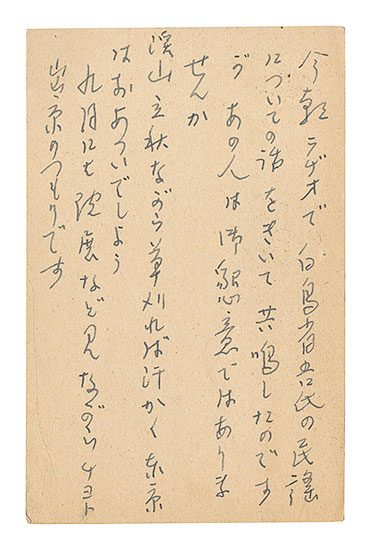 今朝ラヂオで白鳥省吾氏の民謡
についての話をきいて共鳴したのです
が あの人は御懇意ではありま
せんか
渓山立秋ながら草刈れば汗かく 東京
はおあついでしよう
九月にも院展など見ながらチヨト
出京のつもりです